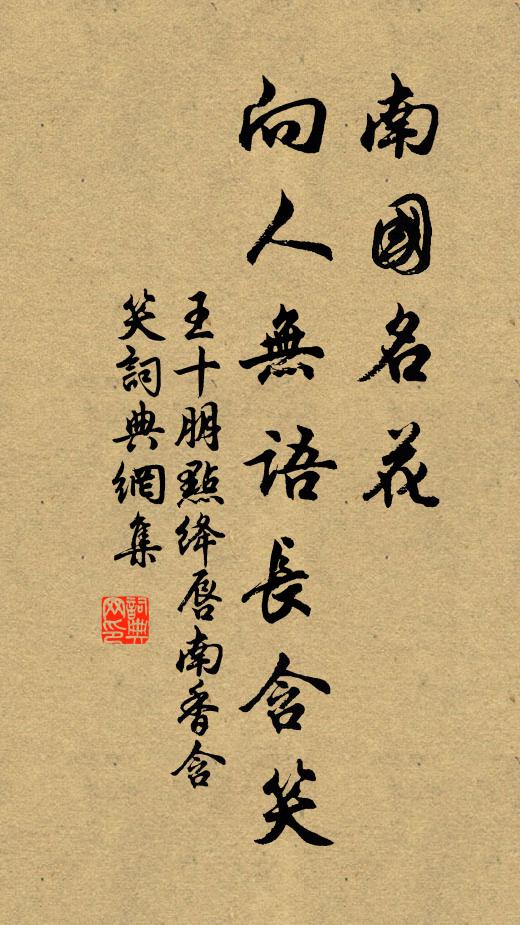 南國名花
向人無語長含笑
王十朋點絳唇南香含
笑詞典網集
詞典
网印